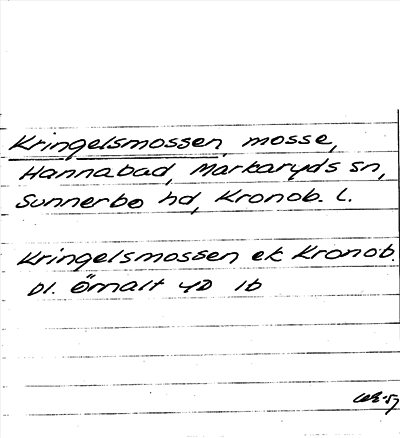 Kringelsmossen, mosse,
Hannabad, Markaryds sn,
Sunnerbo hd, Kronob. l.
Kringelsmossen ek Kronob.
bl. Örnalt 4D 1b